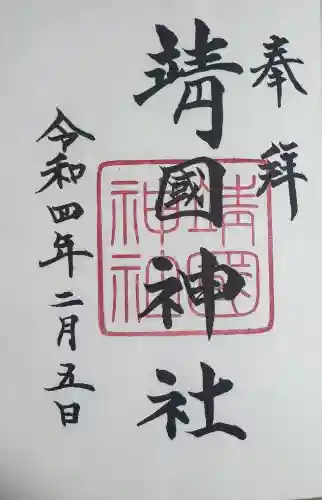 奉拜
靖國神社
靖國
神社
令和四年二月五日